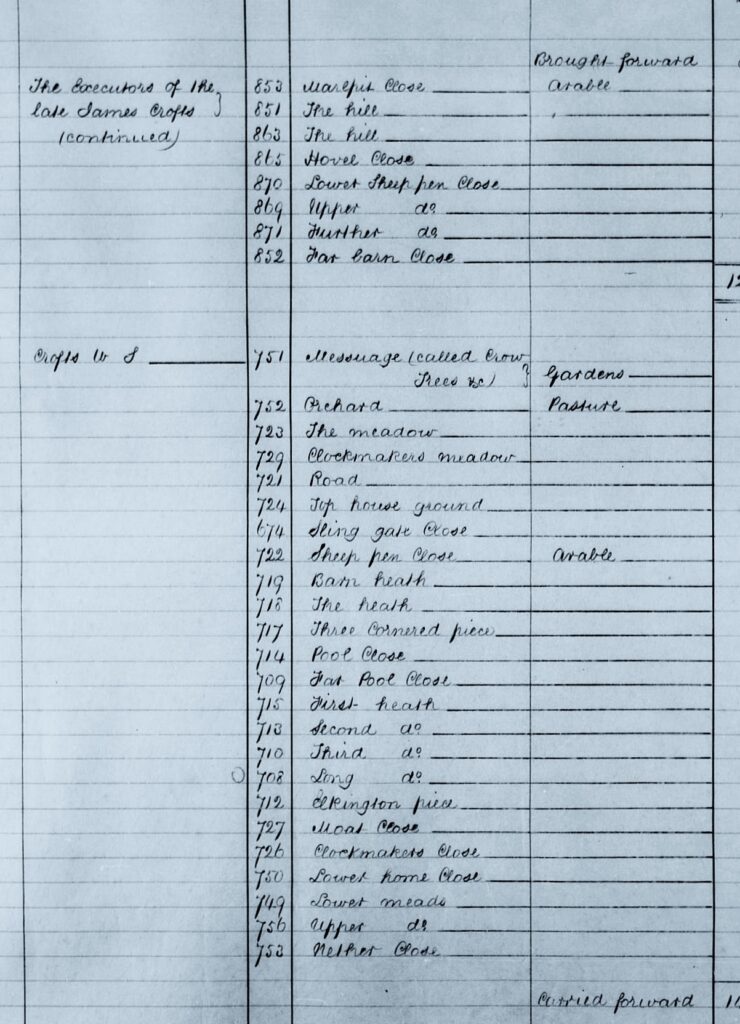 Brought forward
The Executors of the } 853 Marlpit Close Arable
late James Crofts 851 The hill
(continued) 863 The hill
865 Hovel Close
870 Lower Sheep pen Close
869 Upper do
871 Further do
852 Far barn Close
12
Crofts W S 751 Messuage (called Crow
Trees &c) } Gardens
752 Orchard Pasture
723 The meadow
729 Clockmakers meadow
721 Road
724 Top house ground
674 Sling gate Close
722 Sheep pen Close Arable
719 Barn heath
718 The heath
717 Three Cornered piece
714 Pool Close
709 Far Pool Close
715 First heath
713 Second do
710 Third do
708 Long do
712 Elkington piece
727 Moat Close
726 Clockmakers Close
750 Lower home Close
749 Lower meads
756 Upper do
753 Nether Close
Carried forward